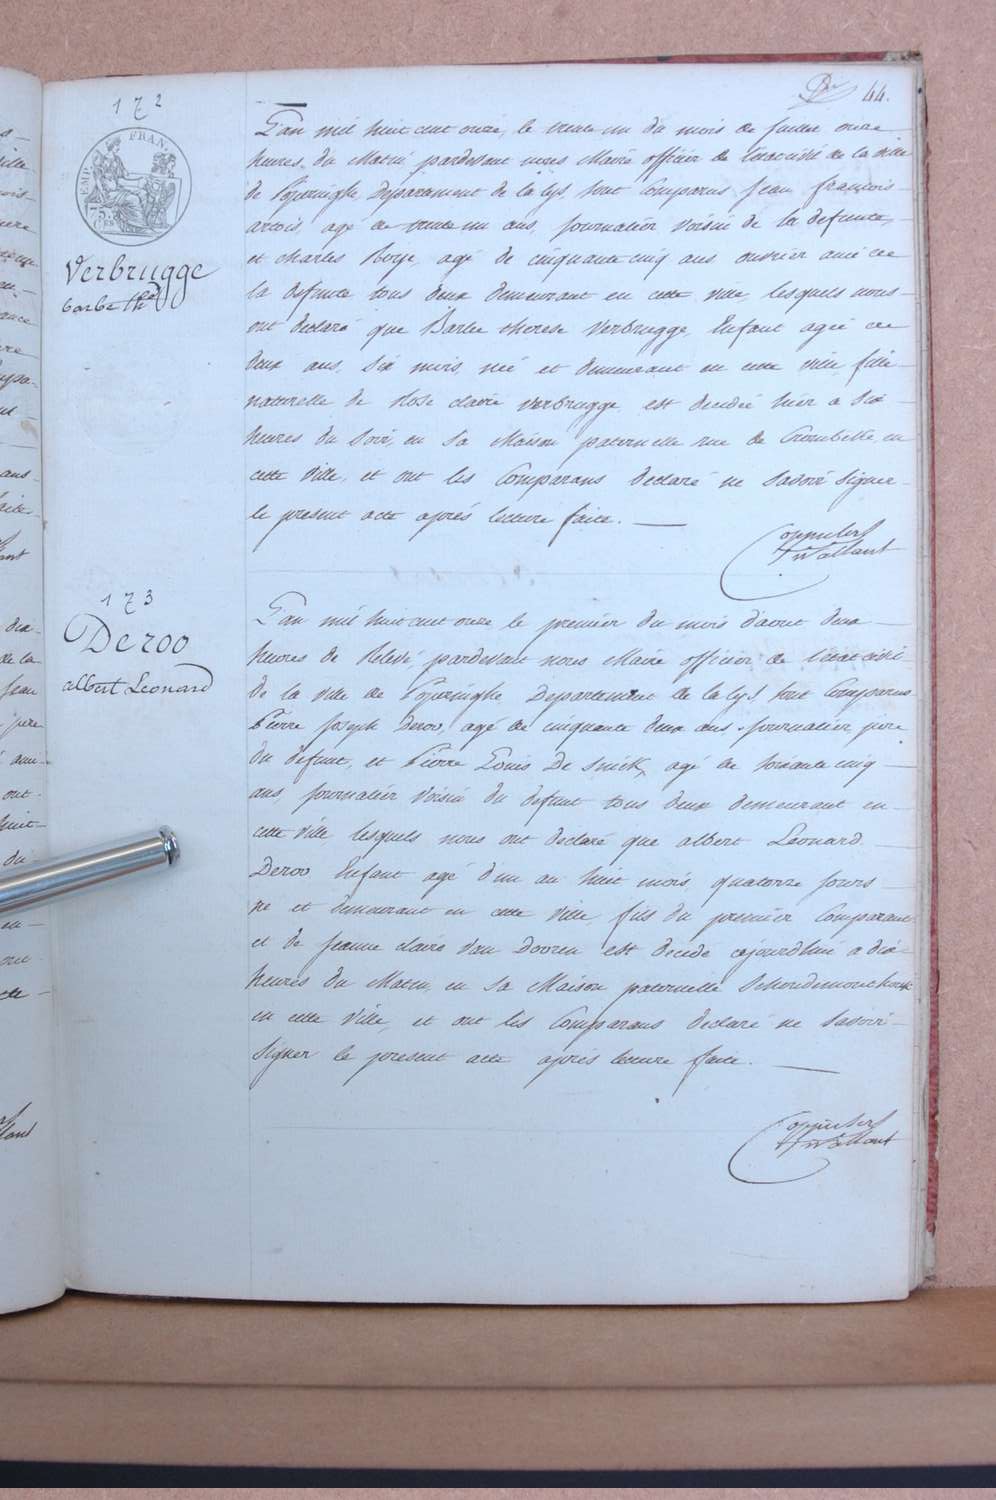 44.
172
EMP. FRAN.
75 Ces
Verbrugge
barbe Th.
L'an mil huit cent onze, le trente un du mois de juillet onze
heures du Matin pardevant nous Maire officier de l'état civil de la ville
de Poperinghe, Departement de la lys, sont Comparus jean francois
artois, agé de trente un ans, journalier voisin de la defunte,
et charles Roye, agé de cinquante cinq ans ouvrier ami de
la defunte tous deux demeurant en cette ville, lesquels nous
ont declaré que Barbe therese Verbrugge, Enfant agée de
deux ans, six mois, née et demeurant en cette ville, fille
naturelle de Rose claire verbrugge, est decedée hier a six
heures du soir, en sa Maison paternelle rue de Crombeke en
cette ville, et ont les Comparans declaré ne savoir signer
le present acte après lecture faite.
173
Deroo
albert Leonard
L'an mil huit cent onze le premier du mois d'aout deux
heures de Relevé, pardevant nous Maire officier de l'état civil
de la ville de Poperinghe, Departement de la lys, sont Comparus
Pierre joseph Deroo, agé de cinquante deux ans, journalier, père
du defunt, et Pierre Louis De Snick, agé de soixante cinq
ans, journalier voisin du defunt tous deux demeurant en
cette ville, lesquels nous ont declaré que albert Leonard
Deroo Enfant agé d'un an huit mois, quatorze jours
né et demeurant en cette ville, fils du premier Comparant
et de jeanne claire van Dooren est decedé cejourdhui a dix
heures du Matin, en sa Maison paternelle
en cette ville, et ont les Comparans declaré ne savoir
signer le present acte après lecture faite.